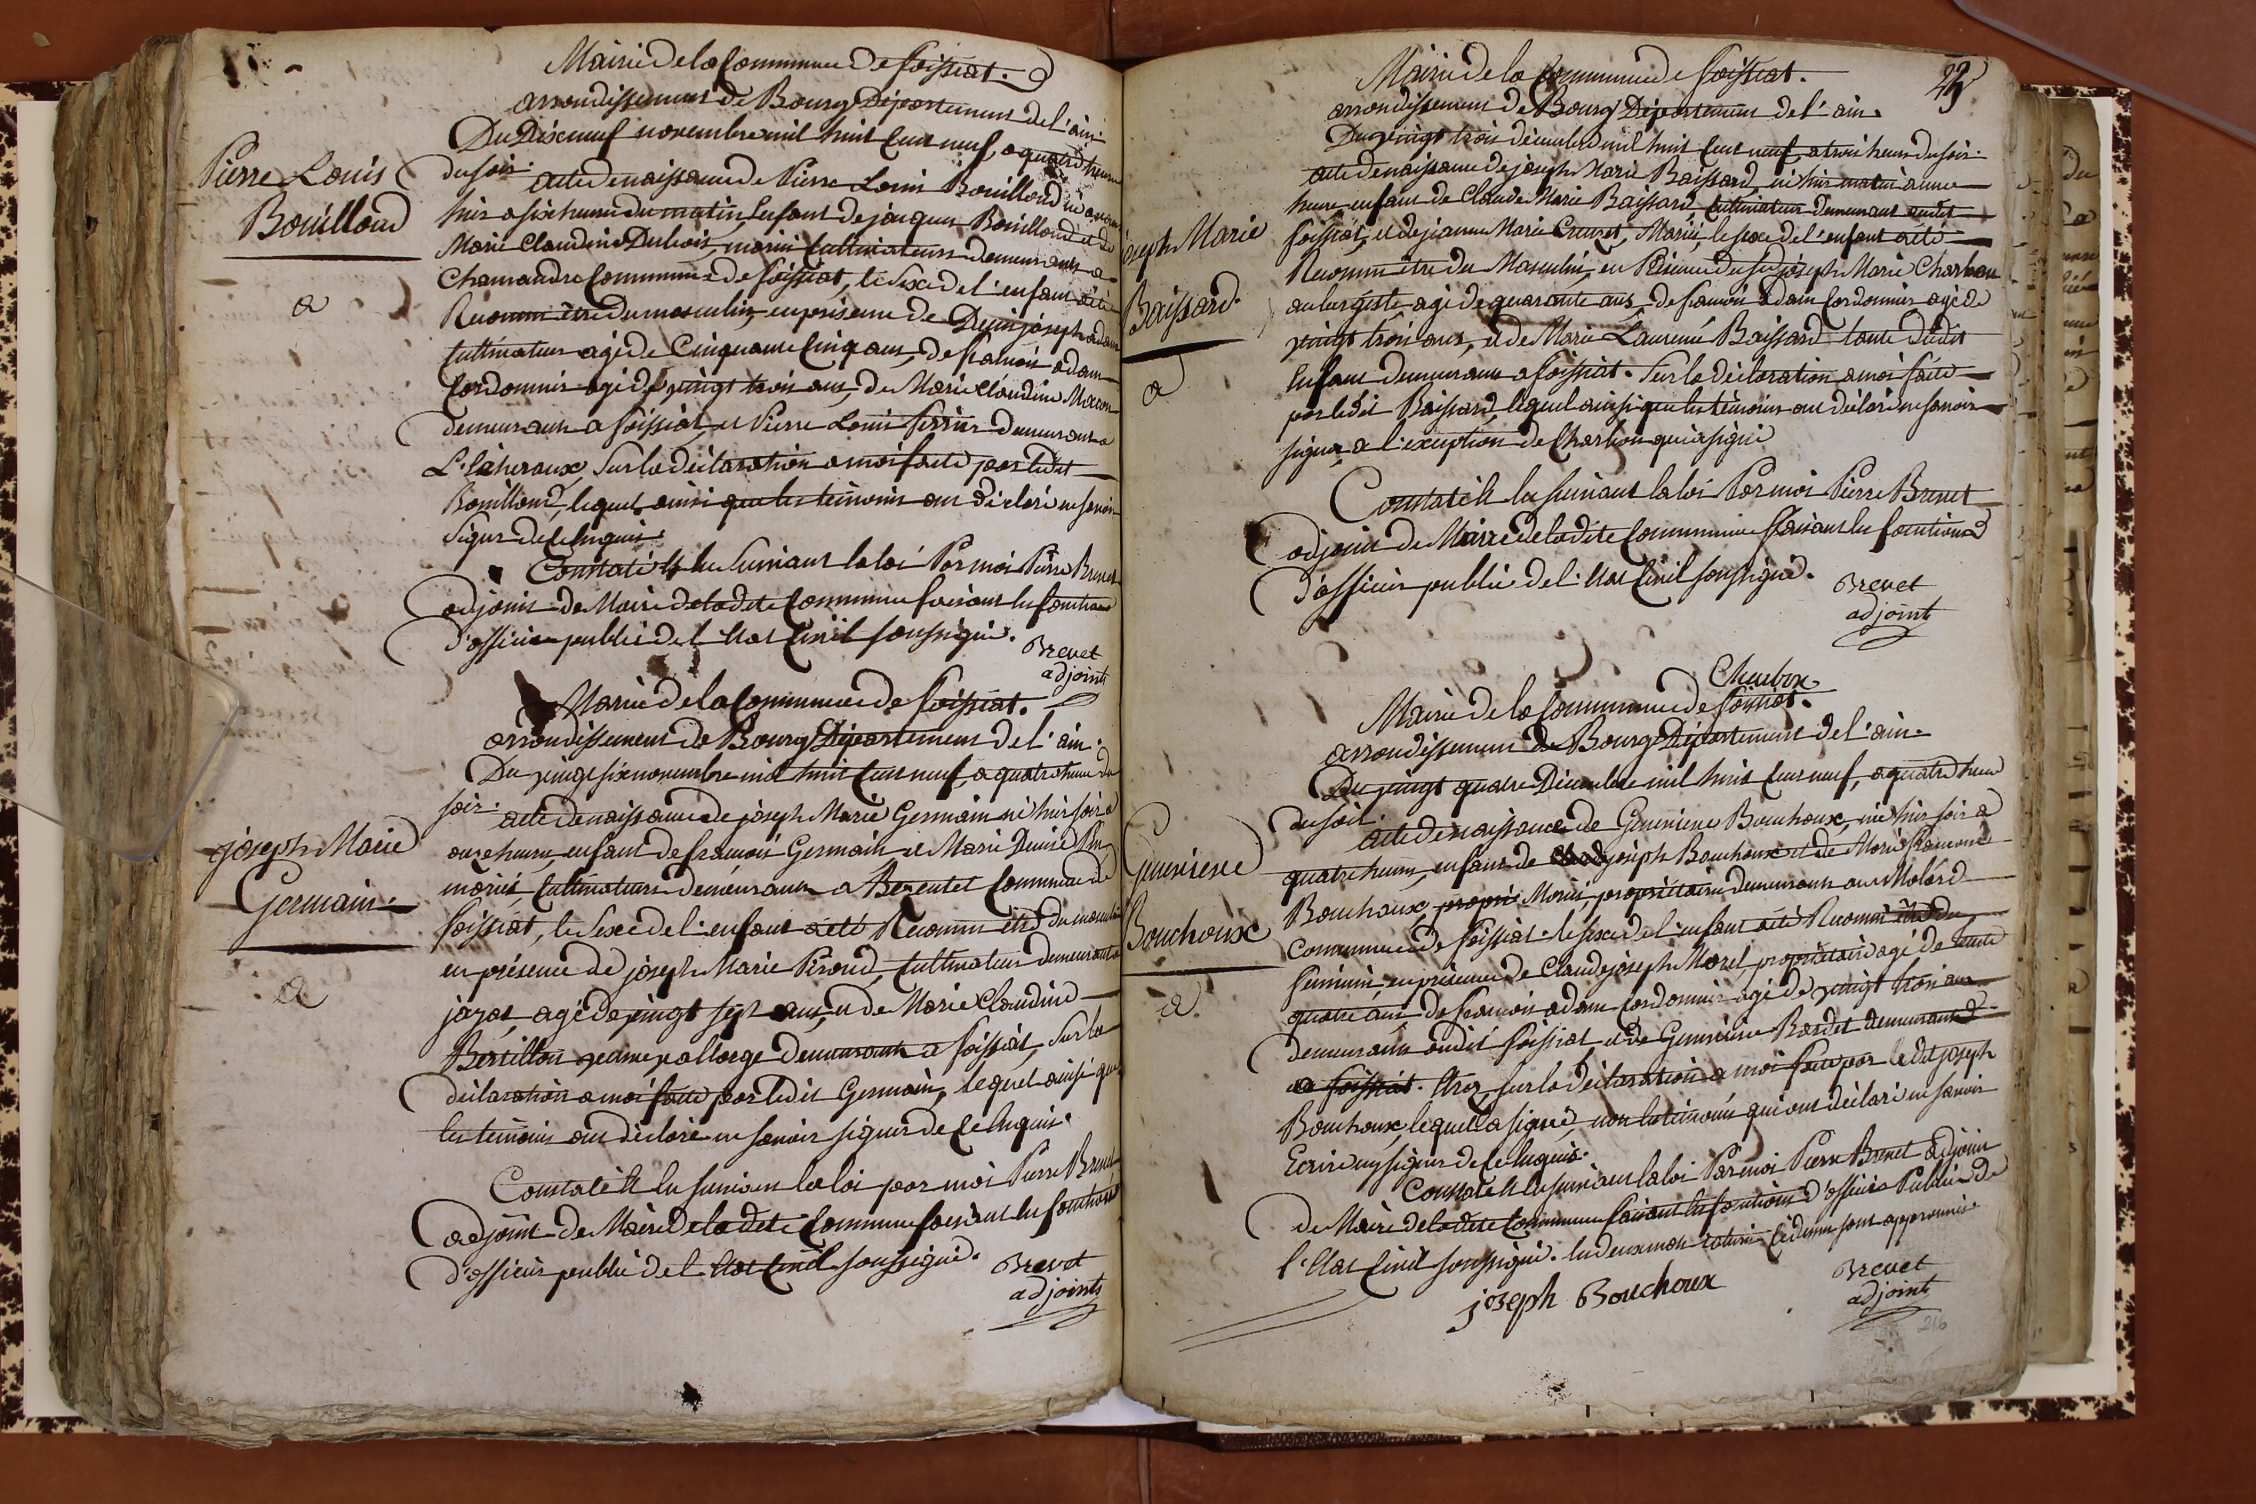 Mairie de la Commune de foissiat.
arrondissement de Bourg Département de l'ain.
Du Dix neuf novembre mil huit Cent neuf, a quatre heures
du soir.
acte de naissance de Pierre Louis Bouilloud né avant
Pierre Louis
Bouilloud
a
hier a six heures du matin, Enfant de jacques Bouilloud et de
Marie Claudine Dubois, mariés Cultivateurs demeurants a
Chamandre Commune de foissiat, le sexe de l'enfant a été
Reconnu être du masculin, en présence de Denis joseph adam
Cultivateur agé de Cinquante Cinq ans, de francois adam
Cordonnier agé de vingt trois ans, de Marie Claudine
demeurants a foissiat, et Pierre Louis ferrier demeurant a
L'Echeroux, Sur la déclaration a moi faite par ledit
Bouilloud, lequel ainsi que les témoins ont déclaré ne savoir
Signer de Ce Enquis.
Constaté Et lu Suivant la loi Par moi Pierre Brevet
adjoint de Maire de la dite Commune faisant les fonctions
d'officier public de l'Etat Civil soussigné.
Brevet
adjoint
Mairie de la Commune de foissiat.
arrondissement de Bourg Département de l'ain.
Du vingt six novembre mil huit Cent neuf, a quatre heures du
soir.
acte de naissance de joseph Marie Germain né hier soir a
joseph Marie
Germain.
a
onze heures, enfant de francois Germain et Marie Denise
mariés, Cultivateurs demeurants a Berentet Commune de
foissiat, le sexe de l'enfant a été Reconnu être du masculin
en présence de joseph Marie Piroud, Cultivateur demeurant a
jayat, agé de vingt sept ans, et de Marie Claudine
Bertillon demeurants a foissiat, Sur la
déclaration a moi faite par ledit Germain, lequel ainsi que
les témoins ont déclaré ne savoir signer de Ce Enquis.
Constaté Et lu suivant la loi par moi Pierre Brevet
adjoint de Maire de la dite Commune faisant les fonctions
d'officier public de l'Etat Civil soussigné.
Brevet
adjoint
23
Mairie de la Commune de foissiat.
arrondissement de Bourg Département de l'ain.
Du vingt trois décembre mil huit Cent neuf, a trois heures du soir.
acte de naissance de joseph Marie Baissard, né hier matin a une
joseph Marie
Baissard.
a
heure, enfant de Claude Marie Baissard Cultivateur demeurant audit
foissiat, et de jeanne Marie Cruzet, Mariés, le sexe de l'enfant a été
Reconnu être du Masculin, en Présence du sr joseph Marie Charbon
aubergiste agé de quarante ans, de francois adam Cordonnier agé de
vingt trois ans, et de Marie Laurence Baissard tante dudit
Enfant demeurants a foissiat. Sur la déclaration a moi faite
par ledit Baissard, lequel ainsi que les témoins ont déclaré ne savoir
signer, a l'exception de Charbon qui a signé
Constaté Et lu suivant la loi Par moi Pierre Brevet
adjoint de Maire de la dite Commune faisant les fonctions
d'officier public de l'Etat Civil soussigné.
Brevet
adjoint
Charbon
Mairie de la Commune de foissiat.
arrondissement de Bourg Département de l'ain.
Du vingt quatre Décembre mil huit Cent neuf, a quatre heures
du soir.
acte de naissance de Genevieve Bouchoux, née hier soir a
Genevieve
Bouchoux
a.
quatre heures, enfant de joseph Bouchoux et de Marie
Bouchoux, Mariés, propriétaires demeurants aux Molard
Commune de foissiat. le sexe de l'enfant a été Reconnu être du
féminin, en présence de Claude joseph Morel, propriétaire agé de trente
quatre ans de francois adam Cordonnier agé de vingt trois ans
demeurants audit foissiat et de Genevieve Bardet demeurante
a foissiat. Sur la déclaration a moi faite par ledit joseph
Bouchoux, lequel a signé, non les témoins qui ont déclaré ne savoir
Ecrire ny signer de Ce Enquis.
Constaté Et lu suivant la loi Par moi Pierre Brevet adjoint
de Maire de la dite Commune faisant les fonctions d'officier Public de
l'Etat Civil soussigné. les deux mots Cidessus sont approuvés.
joseph Bouchoux
Brevet
adjoint
216